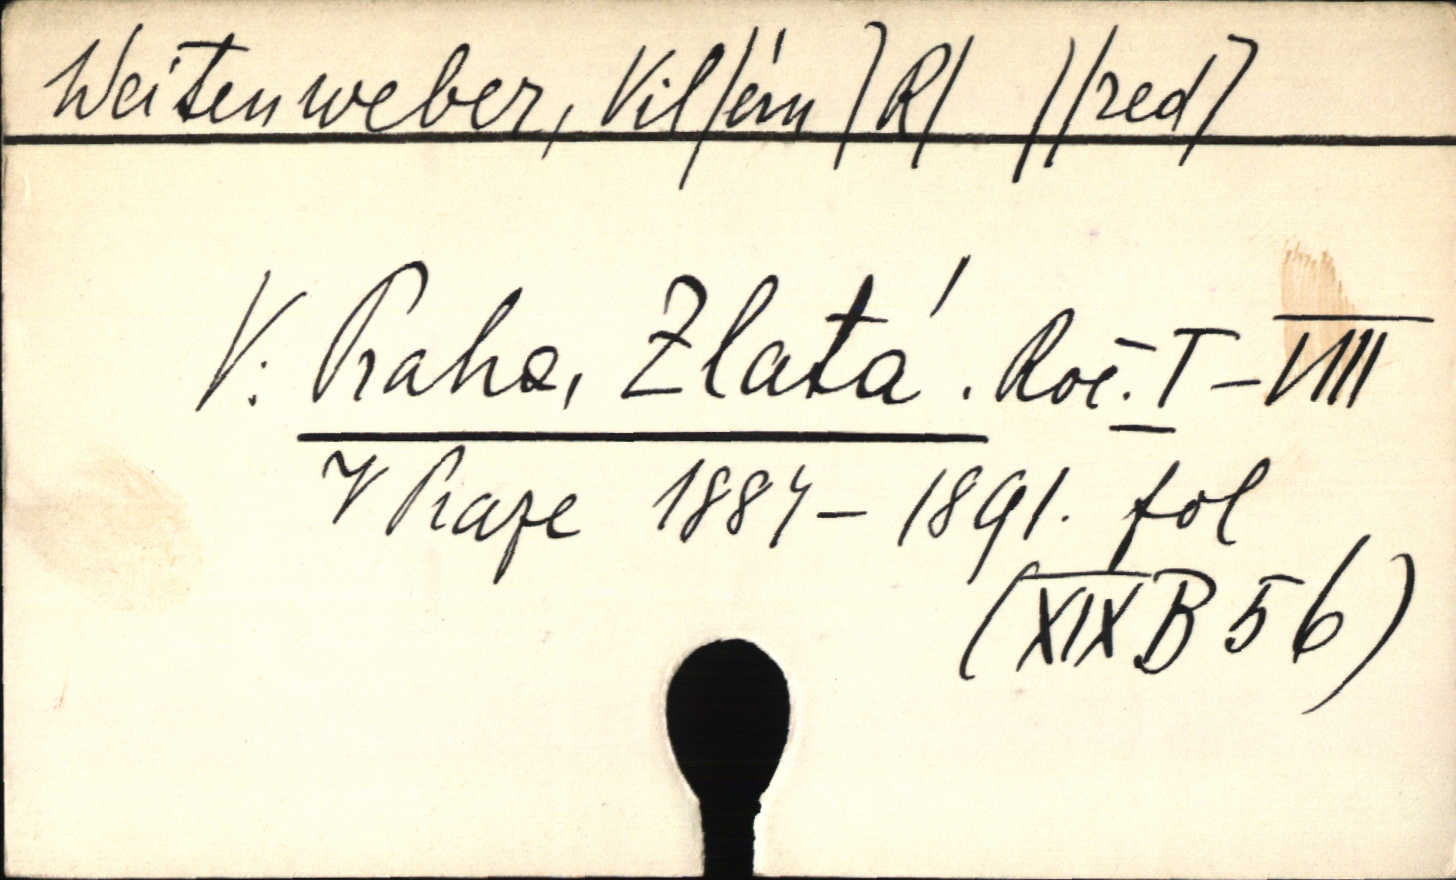 Weitenweber, Vil/ém ] R/ ] /red ]
V: Praha, Zlatá. Roč. I – VIII
V Praze 1884 – 1891. fol
(XIX B 56)